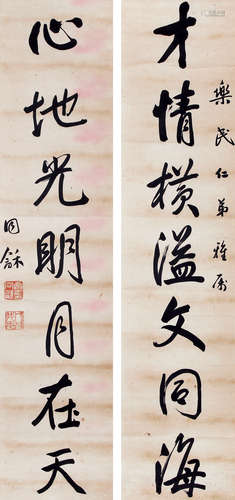 樂民仁弟雅屬
才情橫溢文同海
心地光明月在天
同龢